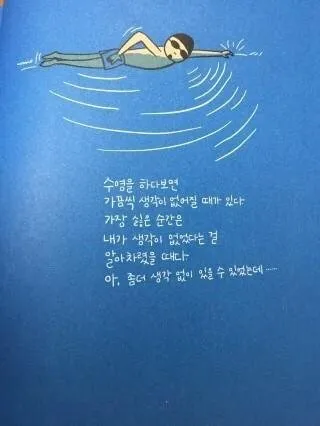 수영을 하다보면
가끔씩 생각이 없어질 때가 있다
가장 싫은 순간은
내가 생각이 없었다는 걸
알아차렸을 때다
아, 좀더 생각 없이 있을 수 있었는데……